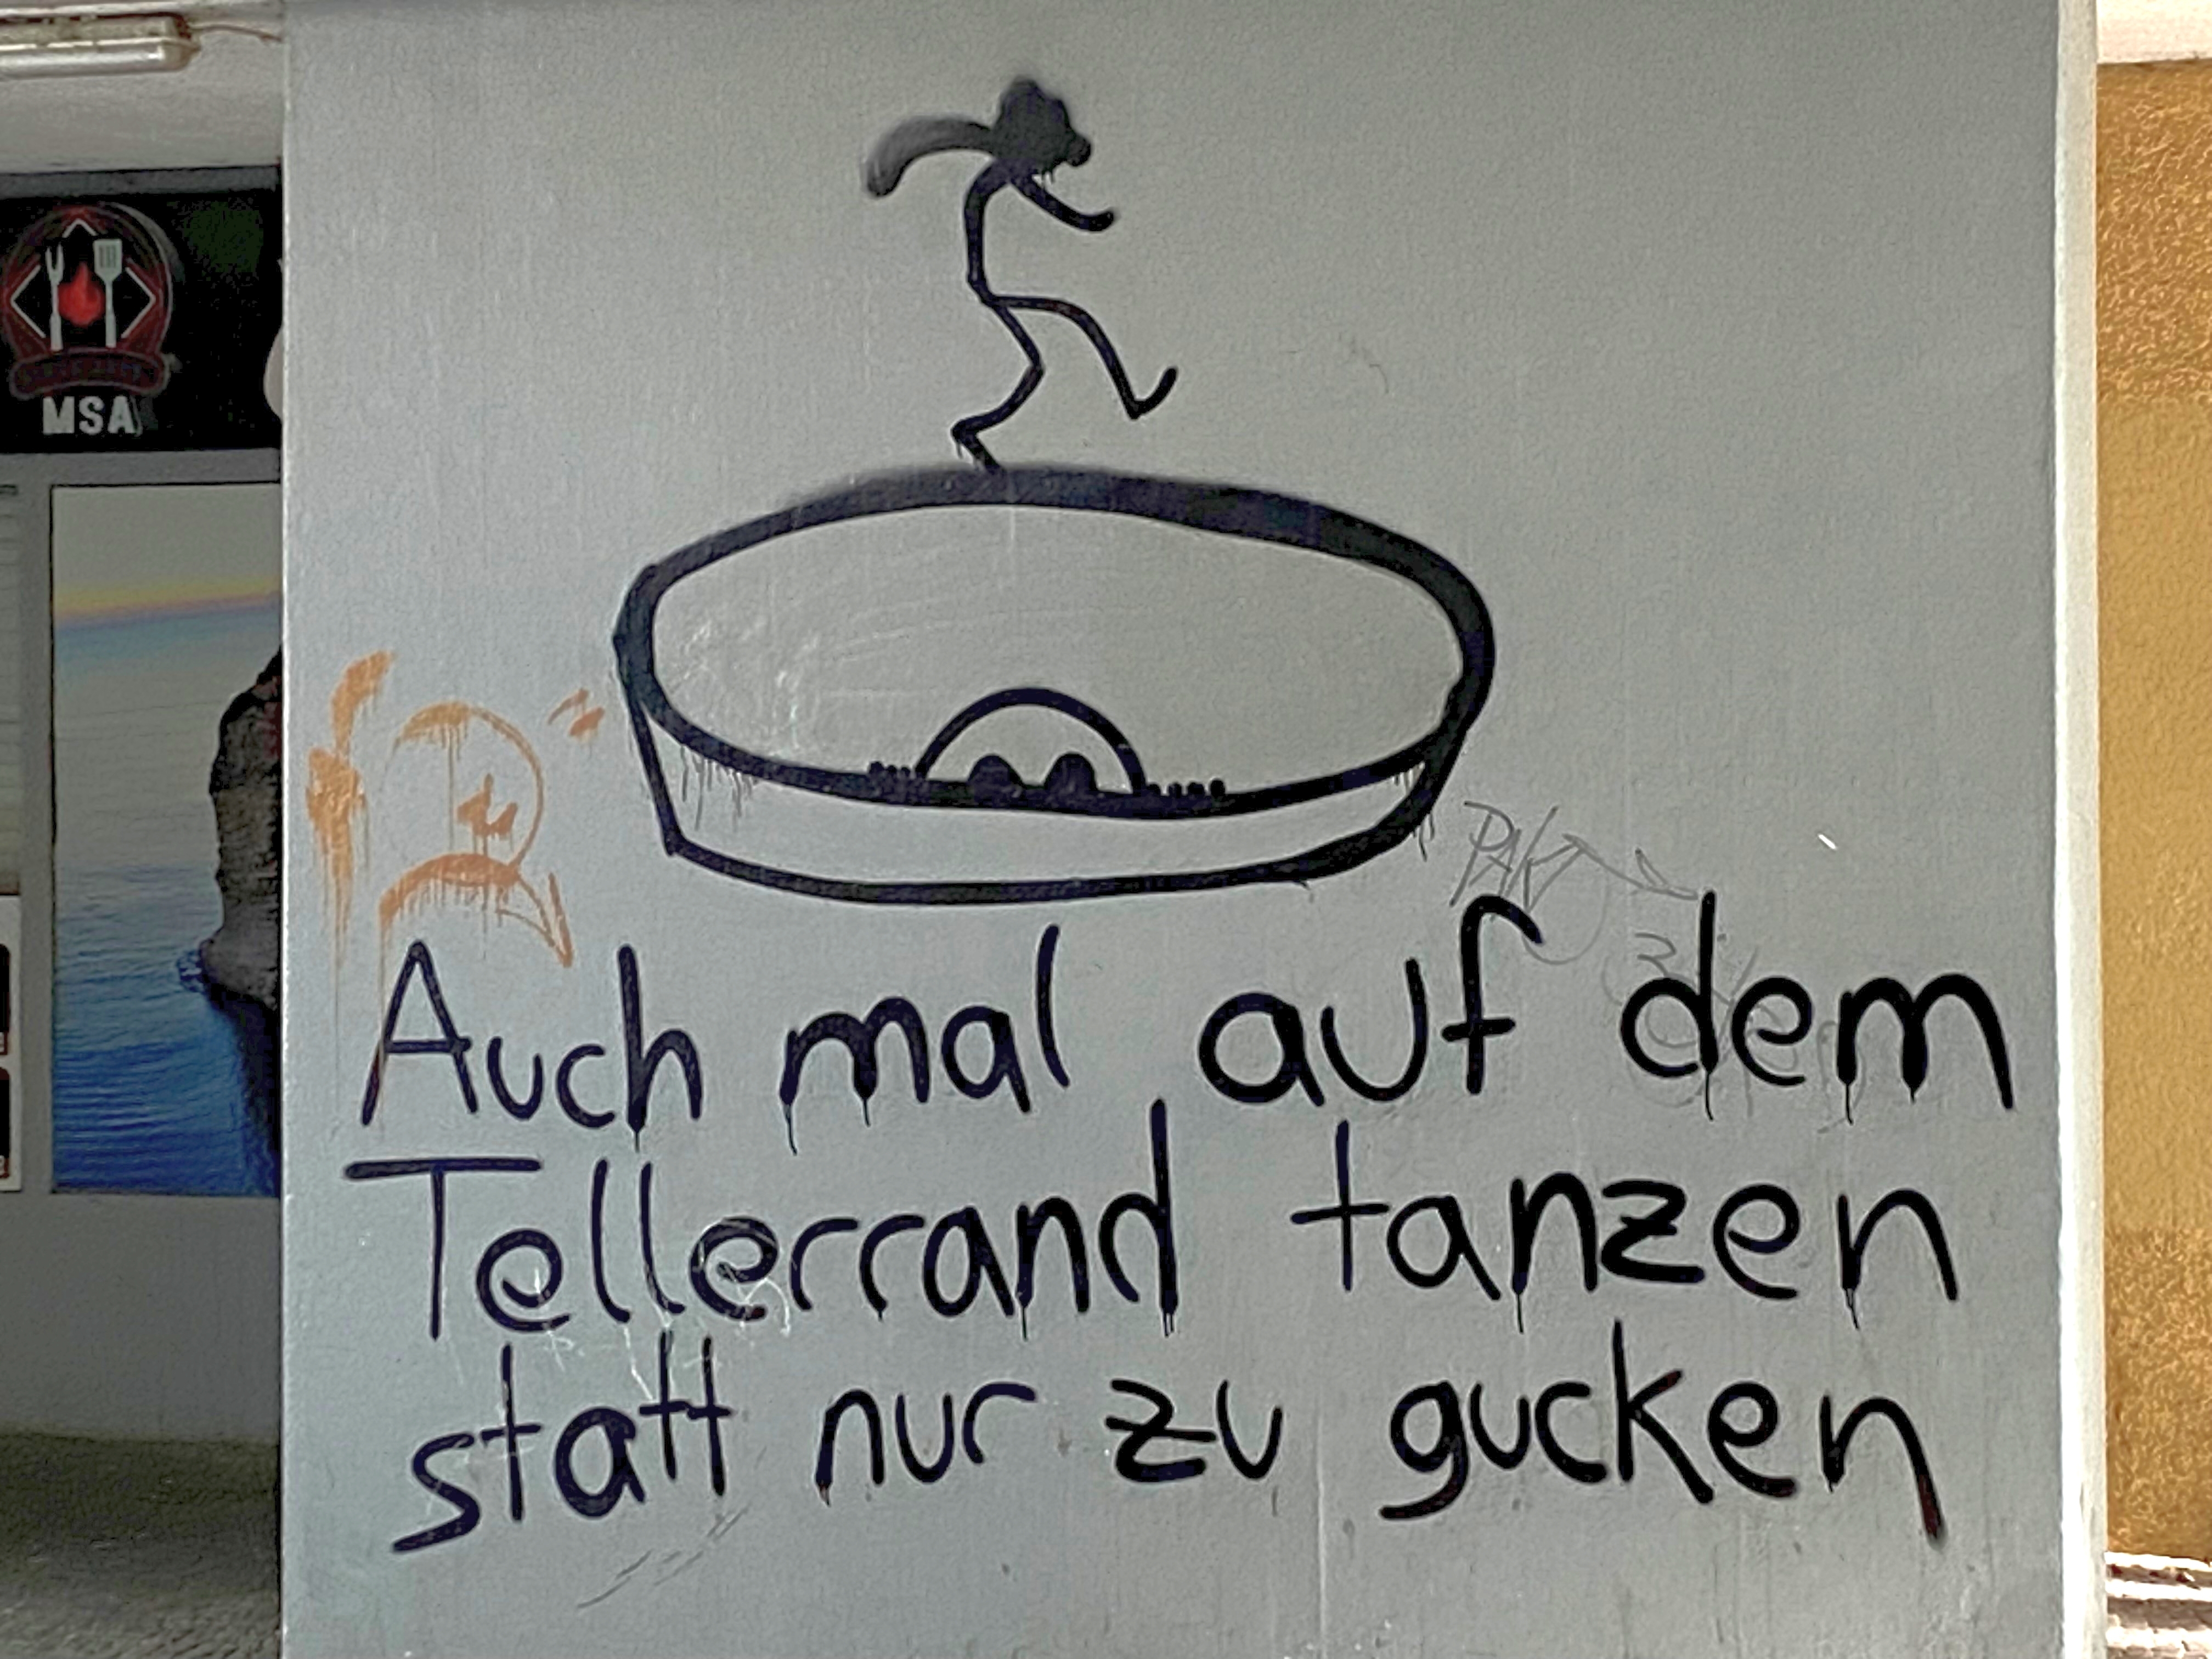 MSA
PAKT
Auch mal auf dem
Tellerrand tanzen
statt nur zu gucken